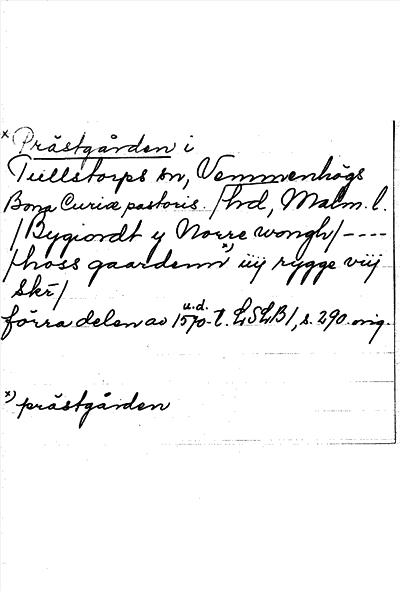 x Prästgården i
Tullstorps sn, Vemmenhögs
Bona Curiæ pastoris. /hd, Malm. l.
/Bygiordt y Norre wongh/----
/hoss gaardenn x) iiij rygge viij
skr/
u.d.
förra delen av 1570-t. LSLB1, s. 290. orig.
x) prästgården